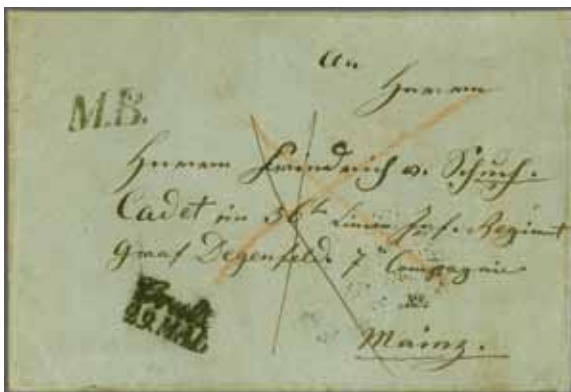 An
Herrn
M.B.
Herrn Friedrich v. Schuch.
Cadet im 36ten Linien Inf. Regimt
Graf Degenfeld. 7te Compagnie
Mainz.
29. MAI.